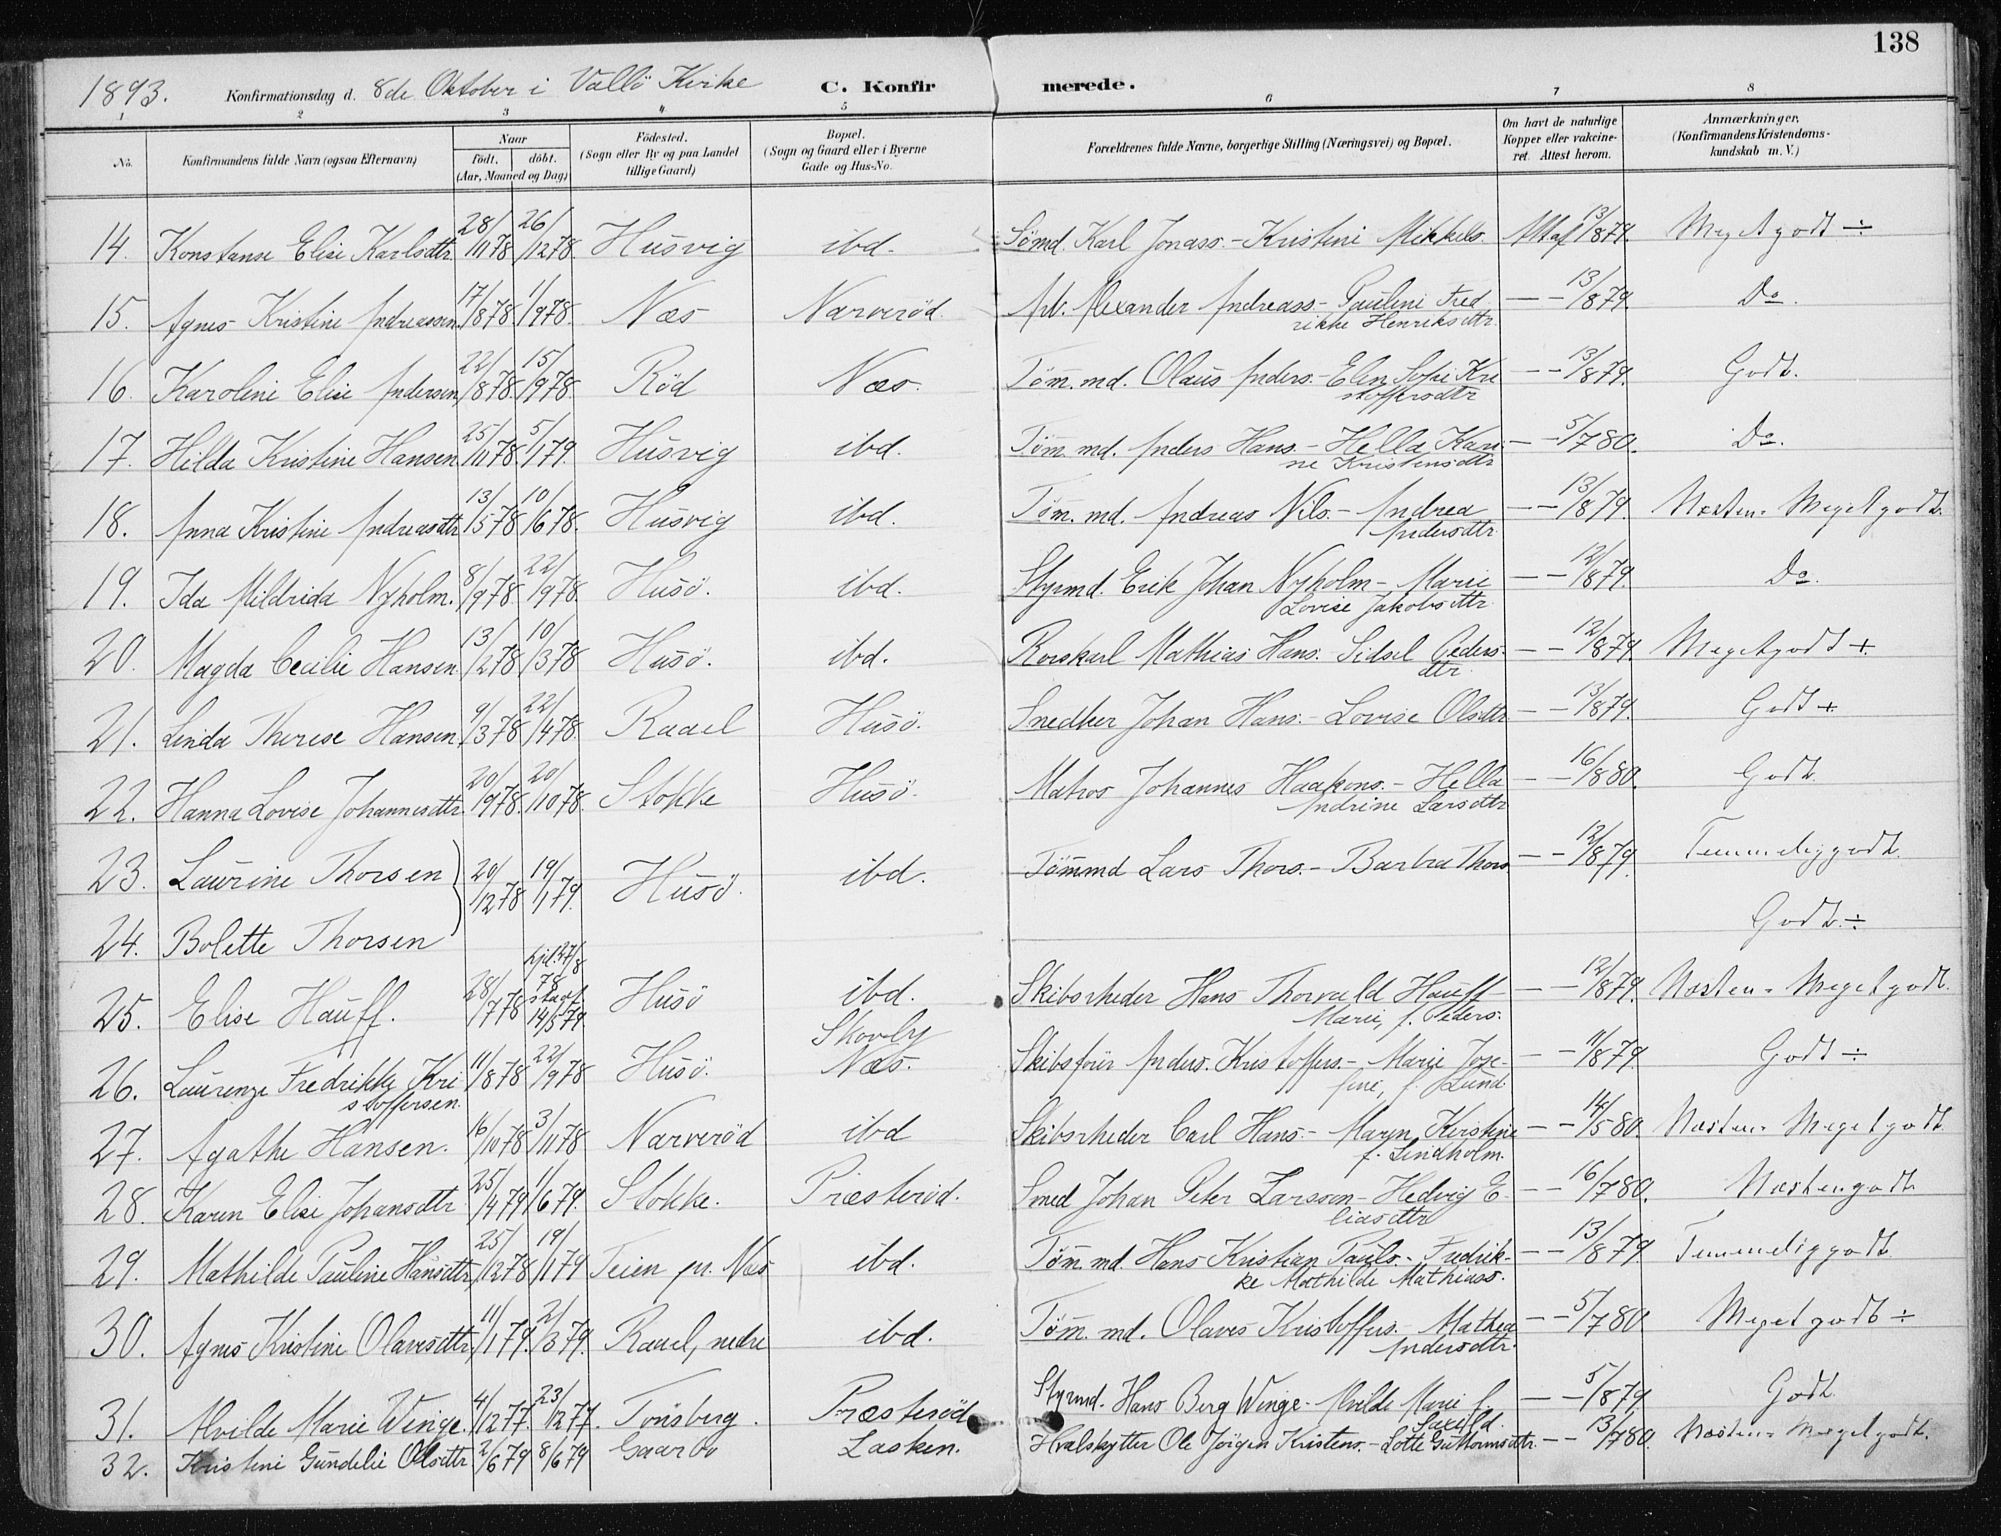 138
1893. Konfirmationsdag d. 8de Oktober i Vallö Kirke C. Konfirmerede.
1 2 3 4 5 6 7 8
No. Konfirmandens fulde Navn (ogsaa Efternavn) Naar födt. döbt. (Aar, Maaned og Dag) Födested. (Sogn eller By og paa Landet tillige Gaard) Bopæl. (Sogn og Gaard eller i Byerne Gade og Hus-No. Forældrenes fulde Navne, borgerlige Stilling (Næringsvei) og Bopæl. Om havt de naturlige Kopper eller vakcineret. Attest herom. Anmærkninger. (Konfirmandens Kristendomskundskab m. V.)
14. Konstanse Elise Karlsdtr. 28/11 78 26/12 78. Husvig ibd. Sømd. Karl Jonass. - Kristine Mikkels. Att af 13/8 79. Megetgodt ÷
15. Agnes Kristine Andreassen 17/8 78. 1/9 78. Næs Narverød. Arb. Alexander Andreass - Pauline Fred
rikke Henriksdtr. — – 13/8 79. Do.
16. Karoline Elise Andersen 22/8 78. 15/9 78. Rød Næs. Tøm. md. Olaus Anders. - Elen Sofie Kri
stoffersdtr — – 13/8 79. Godt.
17. Hilda Kristine Hansen 25/11 78. 5/1 79. Husvig ibd. Tøm. md. Anders Hans. - Hella Kari-
ne Kristensdtr — – 5/7 80. Do.
18. Anna Kristine Andreasdtr 13/5 78. 10/6 78. Husvig ibd. Tøm. md. Andreas Nils. - Andrea
Andersdtr. — – 13/8 79. Næsten Megetgodt.
19. Ida Mildrida Nyholm. 8/9 78. 22/9 78. Husö. ibd. Styrmd. Erik Johan Nyholm - Marie
Lovise Jakobsdtr. — – 12/8 79. Do.
20. Magda Cecilie Hansen 13/2 78 10/3 78 Husö. ibd. Rorskarl Mathias Hans. Sidsel Peders-
dtr — – 12/8 79. Megetgodt +.
21. Linda Therese Hansen 9/3 78 22/4 78. Raael Husö. Snedker Johan Hans. - Lovise Olsdtr — – 13/8 79. Godt +
22. Hanna Lovise Johannesdtr. 20/9 78. 20/10 78. Stokke Husö. Matros Johannes Haakons. - Hella
Andrine Larsdtr — – 16/8 80. Godt
23. Laurine Thorsen 20/12 78 19/1 79. Husö. ibd. Tømmd Lars Thors. - Barbra Thors — – 12/8 79. Temmeliggodt.
24. Bolette Thorsen Godt. ÷
25. Elise Hauff. 28/7 78 hjd. 27/8
78
stadf
14/5 79. Husö ibd. Skibsrheder Hans Thorvald Hauff -
Marie, f. Peders. — – 12/8 79. Næsten Megetgodt.
26. Laurenze Fredrikke Kri
stoffersen. 11/8 78 22/9 78 Husö. Skovly
Næs. Skibsfører Anders. Kristoffers. - Marie Jose-
fine, f. Lund — – 11/8 79. Godt ÷
27. Agathe Hansen. 16/10 78 3/11 78 Narverød ibd Skibsrheder Carl Hans. - Maren Kirstine
f. Lindholm. — – 14/5 80. Næsten Megetgodt.
28. Karen Elise Johansdtr. 25/4 79 1/6 79. Stokke. Præsterød. Smed Johan Peter Larssen - Hedvig E-
liasdtr — – 16/7 80. Næstengodt
29. Mathilde Pauline Hansdtr. 25/12 78 19/1 79 Teien pr. Næs ibd. Tøm. md. Hans Kristian Pauls. - Fredrik-
ke Mathilde Mathiass. — – 13/8 79. Temmeliggodt
30. Agnes Kristine Olavesdtr. 11/1 79. 2/3 79. Raael, nedre ibd. Tøm. md. Olaves Kristoffers. - Mathea
Andersdtr. — – 5/7 80. Megetgodt ÷
31. Alvilde Marie Winge. 4/12 77. 23/12 77. Tønsberg. Præsterød Styrmd. Hans Berg Winge - Alvilde Marie f.
Saxild. — – 5/8 79. Godt
32. Kristine Gundelie Olsdtr 2/6 79 8/6 79 Gaarbo Lasken. Hvalskytter Ole Jörgen Kristens. - Lotte Guttormsdtr. — – 13/7 80. Næsten Megetgodt.